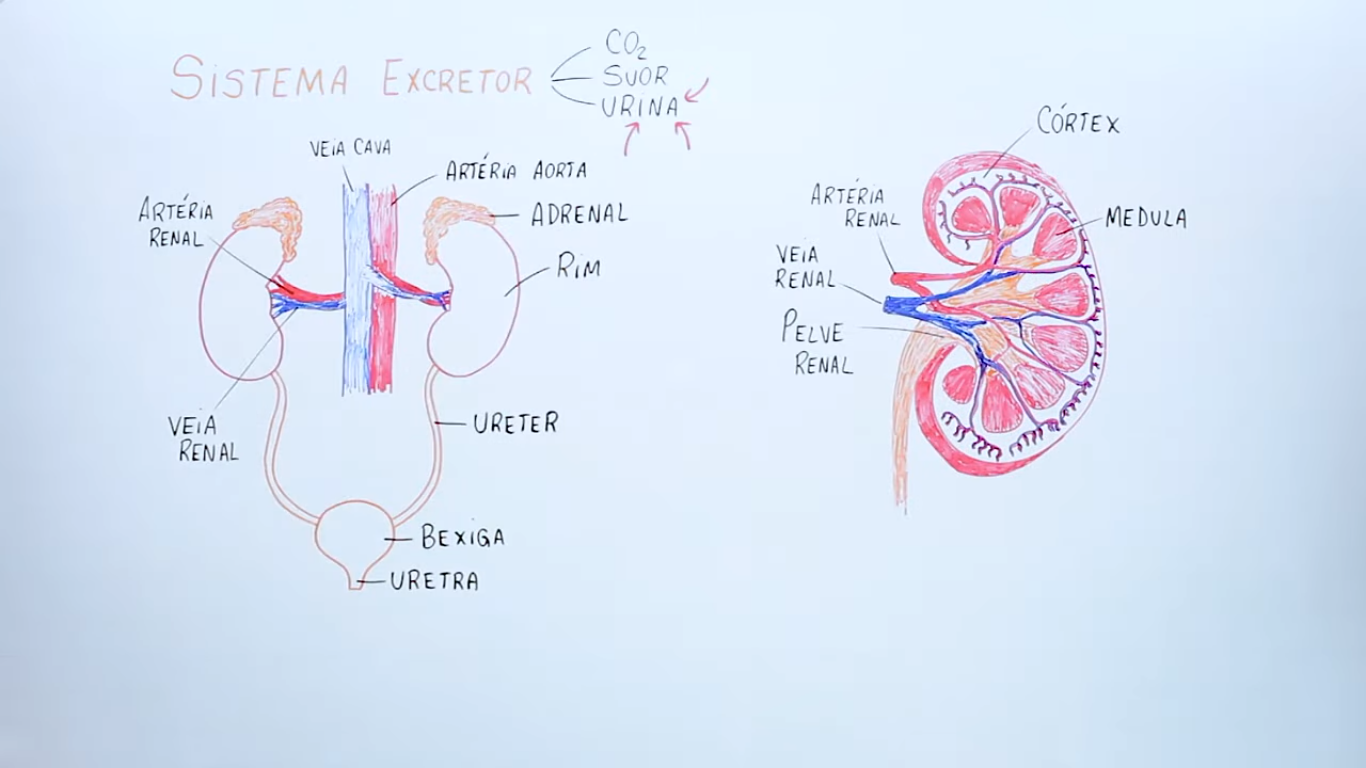 SISTEMA EXCRETOR
CO2
SUOR
URINA
VEIA CAVA
ARTÉRIA AORTA
ARTÉRIA
RENAL
ADRENAL
RIM
VEIA
RENAL
URETER
BEXIGA
URETRA
CÓRTEX
ARTÉRIA
RENAL
MEDULA
VEIA
RENAL
PELVE
RENAL